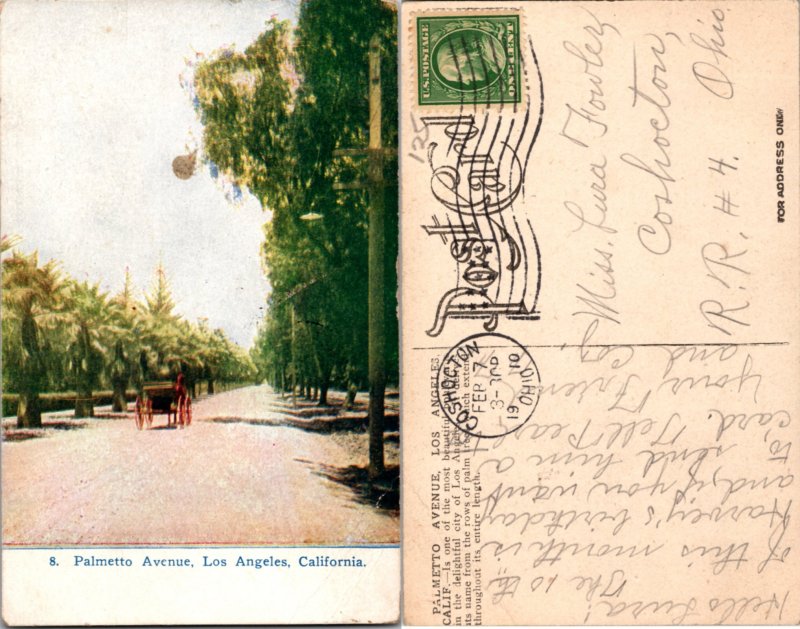 8. Palmetto Avenue, Los Angeles, California.
U.S. POSTAGE
ONE CENT
Post Card
125
COSHOCTON
FEB 7
3-30P
1910
OHIO
FOR ADDRESS ONLY
Miss. Lura Fowler,
Coshocton,
R. R. #4. Ohio.
PALMETTO AVENUE, LOS ANGELES,
CALIF.—Is one of the most beautiful
in the delightful city of Los Angeles
its name from the rows of palm trees which extend
throughout its entire length.
Hello Lura!
The 10 th
of this month is
Harvey's birthday
and, if you want
to send him a
card. Tell Pearl
your Friend
and Co.